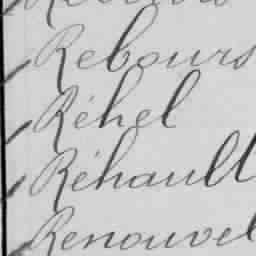 Rebours
Réhel
Réhault
Renouvel